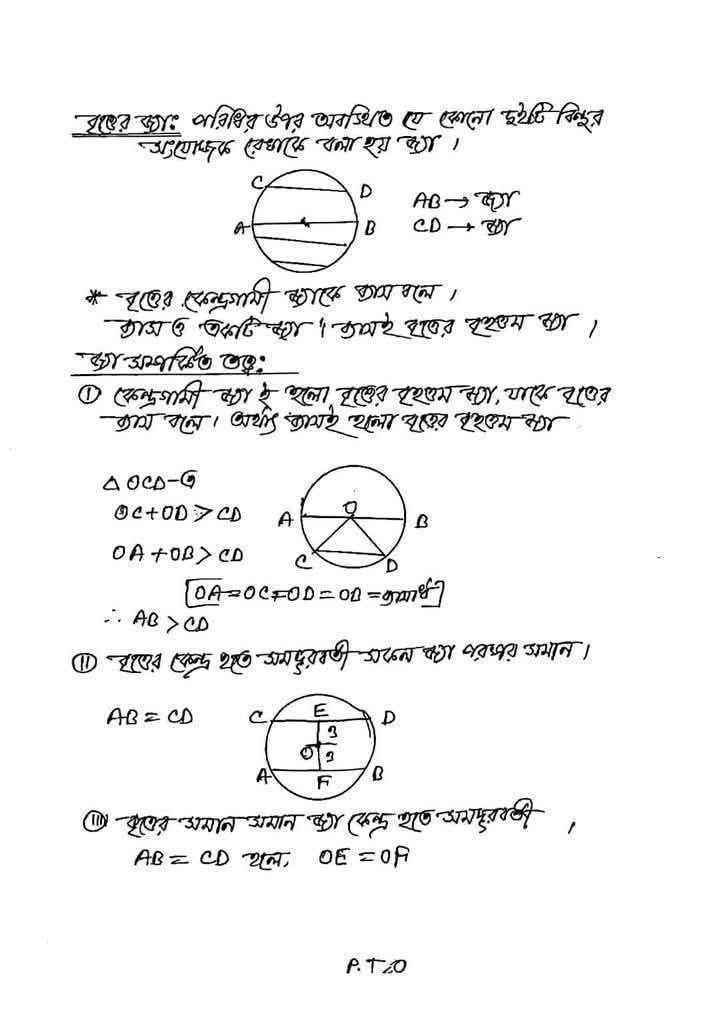 বৃত্তের জ্যাঃ পরিধির উপর অবস্থিত যে কোনো দুইটি বিন্দুর
সংযোজক রেখাকে বলা হয় জ্যা।
C D
A B
AB → জ্যা
CD → জ্যা
* বৃত্তের কেন্দ্রগামী জ্যাকে ব্যাস বলে।
ব্যাস ও একটি জ্যা। ব্যাসই বৃত্তের বৃহত্তম জ্যা।
জ্যা সম্পর্কিত তত্ত্ব:
(i) কেন্দ্রগামী জ্যা ই হলো বৃত্তের বৃহত্তম জ্যা, যাকে বৃত্তের
ব্যাস বলে। অর্থাৎ ব্যাসই হলো বৃত্তের বৃহত্তম জ্যা
△ OCD-এ
OC+OD > CD
O
A B
C D
OA+OB > CD
[OA=OC=OD=OB=ব্যাসার্ধ]
∴ AB > CD
(ii) বৃত্তের কেন্দ্র হতে সমদূরবর্তী সকল জ্যা পরস্পর সমান।
AB = CD
C E D
3
O 3
A F B
(iii) বৃত্তের সমান সমান জ্যা কেন্দ্র হতে সমদূরবর্তী,
AB = CD হলে, OE = OF
P.T.O